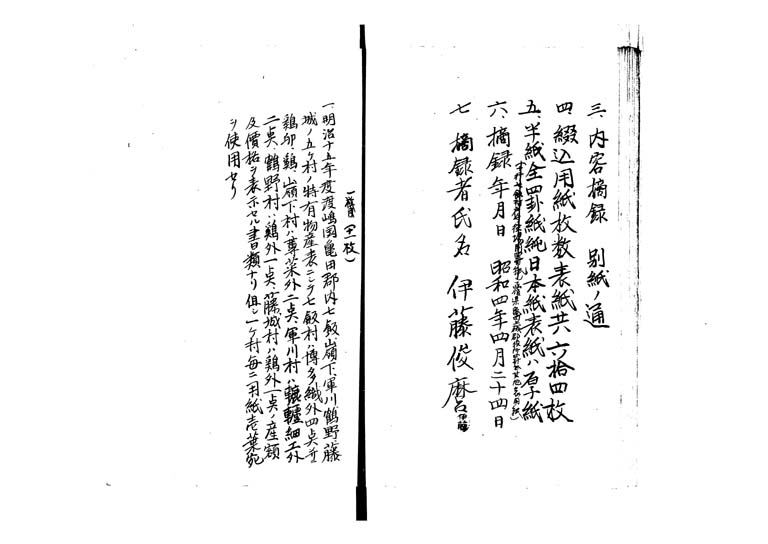 三、内容摘録 別紙ノ通
四、綴込用紙枚数表紙共六拾四枚
五、半紙全罫紙純日本紙表紙ハ厚子紙
六、摘録年月日 昭和四年四月二十四日
七 摘録者氏名 伊藤俊麿
一、明治十五年度渡嶋国亀田郡内七飯嶺下軍川鶴野藤
城ノ五ヶ村ノ特有物産表ニシテ七飯村ハ博多織外四点
鶏卵鶏嶺下村ハ蓴菜外二点軍川村ハ轆轤細工外
二点鶴野村ハ鶏外一点藤城村ハ鶏外一点ノ産額
及價格ヲ表示セル書類ナリ但シ一ケ村毎ニ用紙壱葉宛
ヲ使用セリ